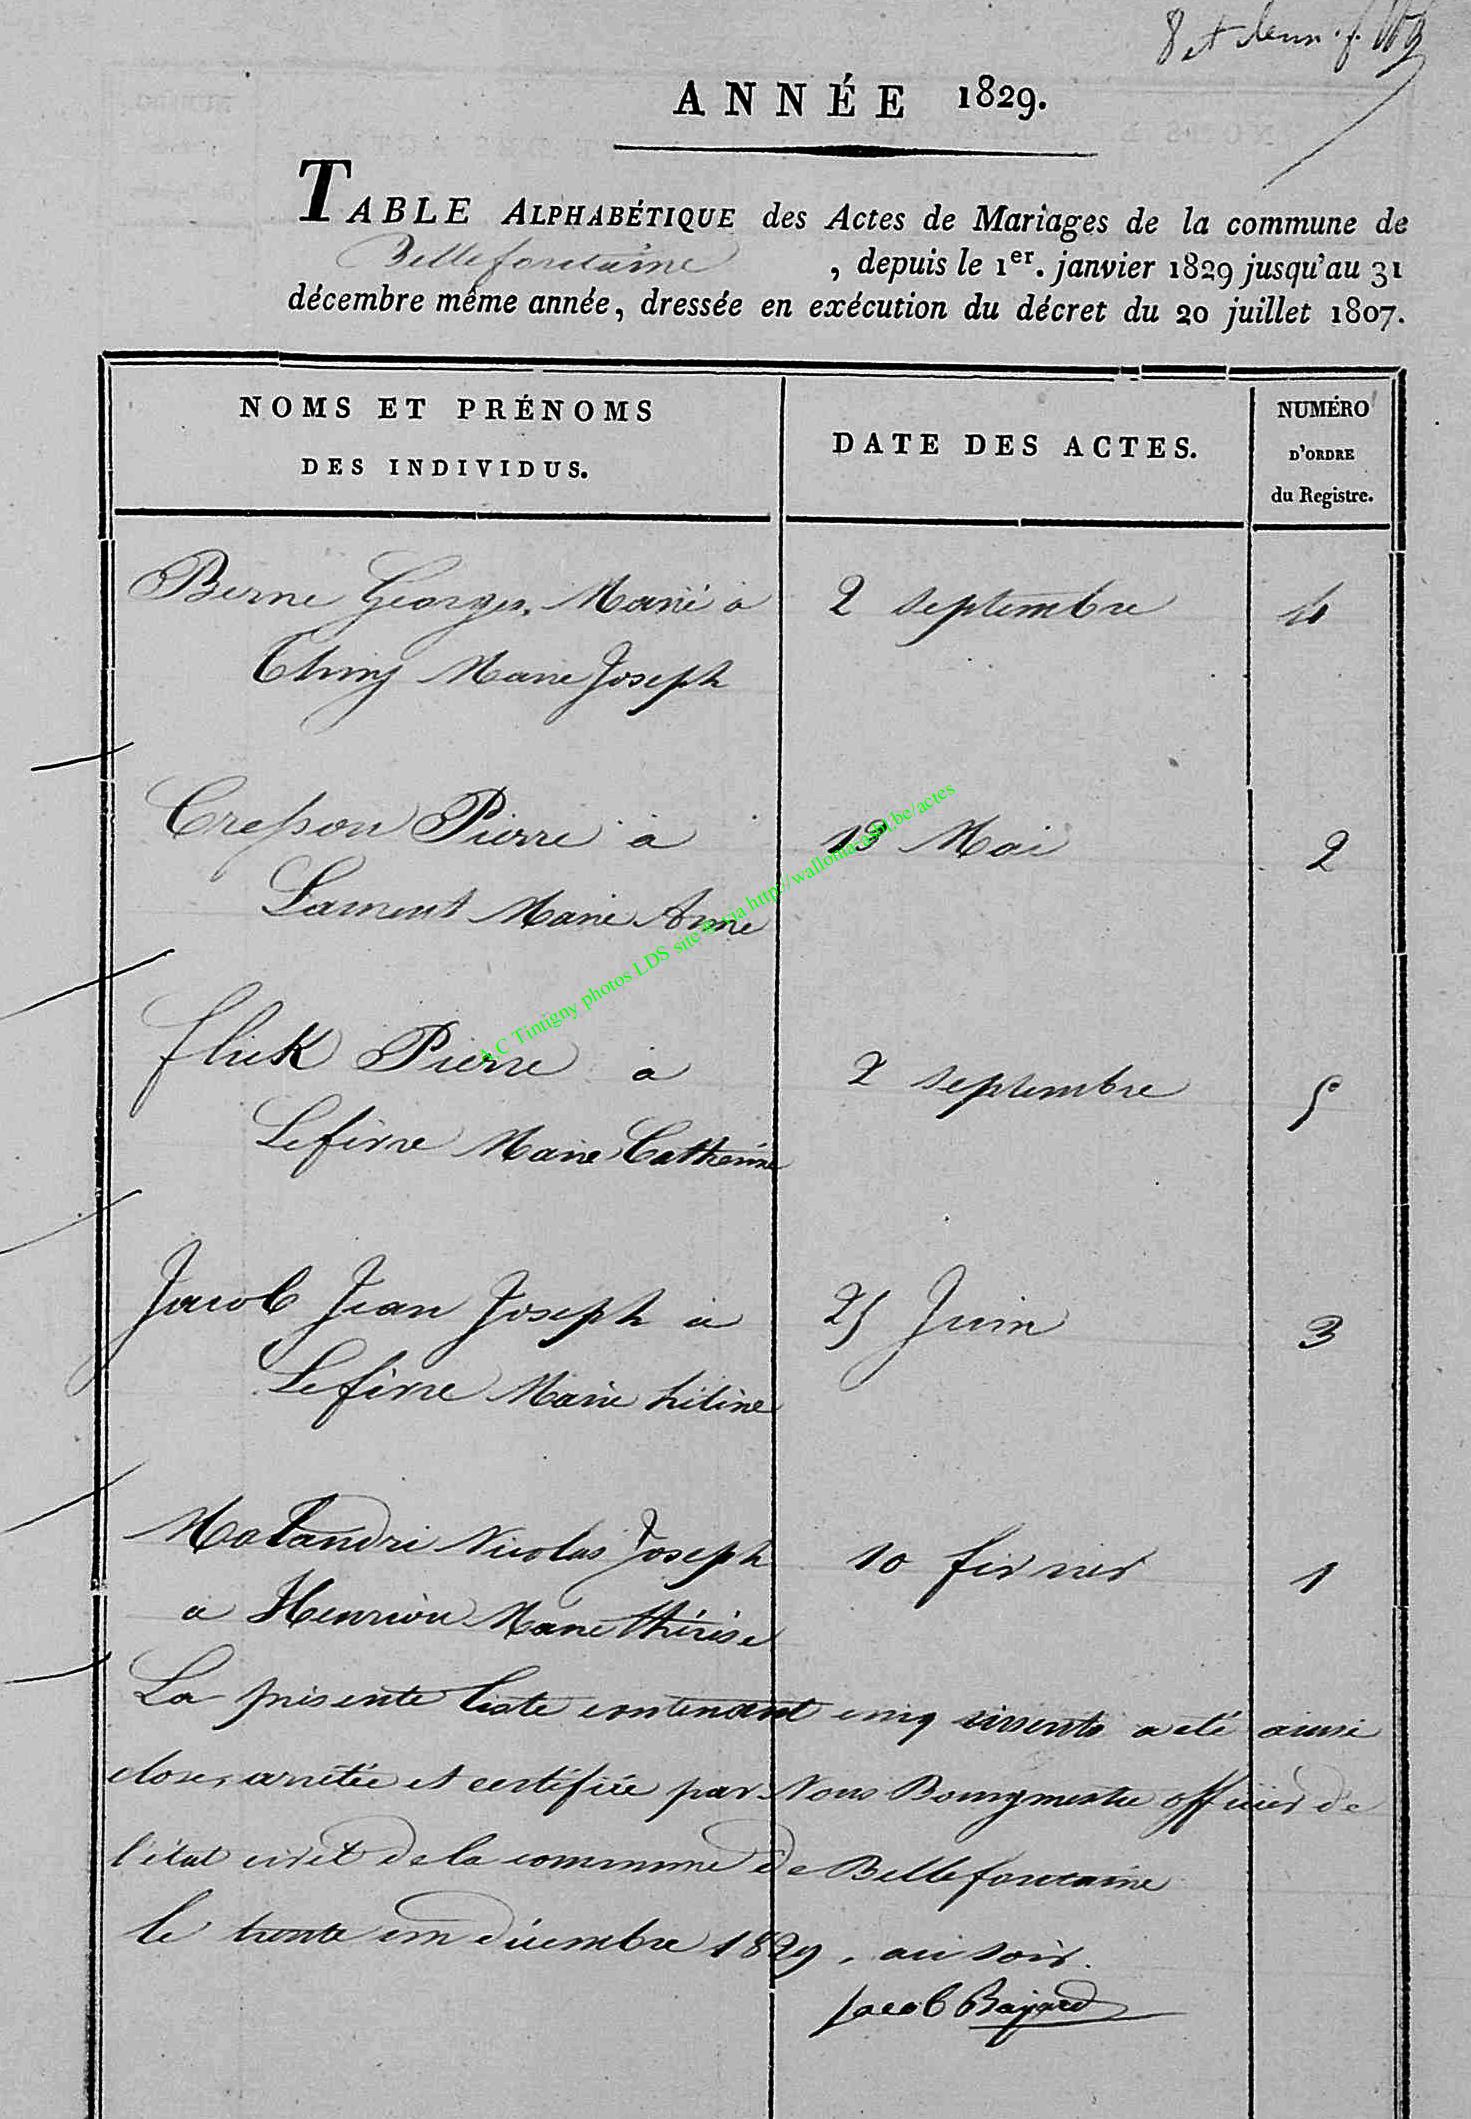 ANNÉE 1829.
TABLE ALPHABÉTIQUE des Actes de Mariages de la commune de
Bellefontaine, depuis le 1er. janvier 1829 jusqu'au 31
décembre même année, dressée en exécution du décret du 20 juillet 1807.
NOMS ET PRÉNOMS
DES INDIVIDUS.
DATE DES ACTES.
NUMÉRO
D'ORDRE
du Registre.
Berne Georges, Marié a 2 septembre 4
Thiry Marie Joseph
Crepon Pierre à 13 Mai 2
Laurent Marie Anne
flick Pierre a 2 septembre 5
Lefevre Marie Catherine
Jacob Jean Joseph a 25 Juin 3
Lefevre Marie héléne
Nicolas Joseph 10 février 1
a Henrion Marie thérése
La présente liste contenant cinq a été ainsi
close, arretée et certifiée par Nous Bourgmestre officier de
l'état civil de la commune de Bellefontaine
le trente un décembre 1829, au soir.
Jacob Bajard
A.C Tintigny photos LDS site via http://wallonia-asbl.be/actes